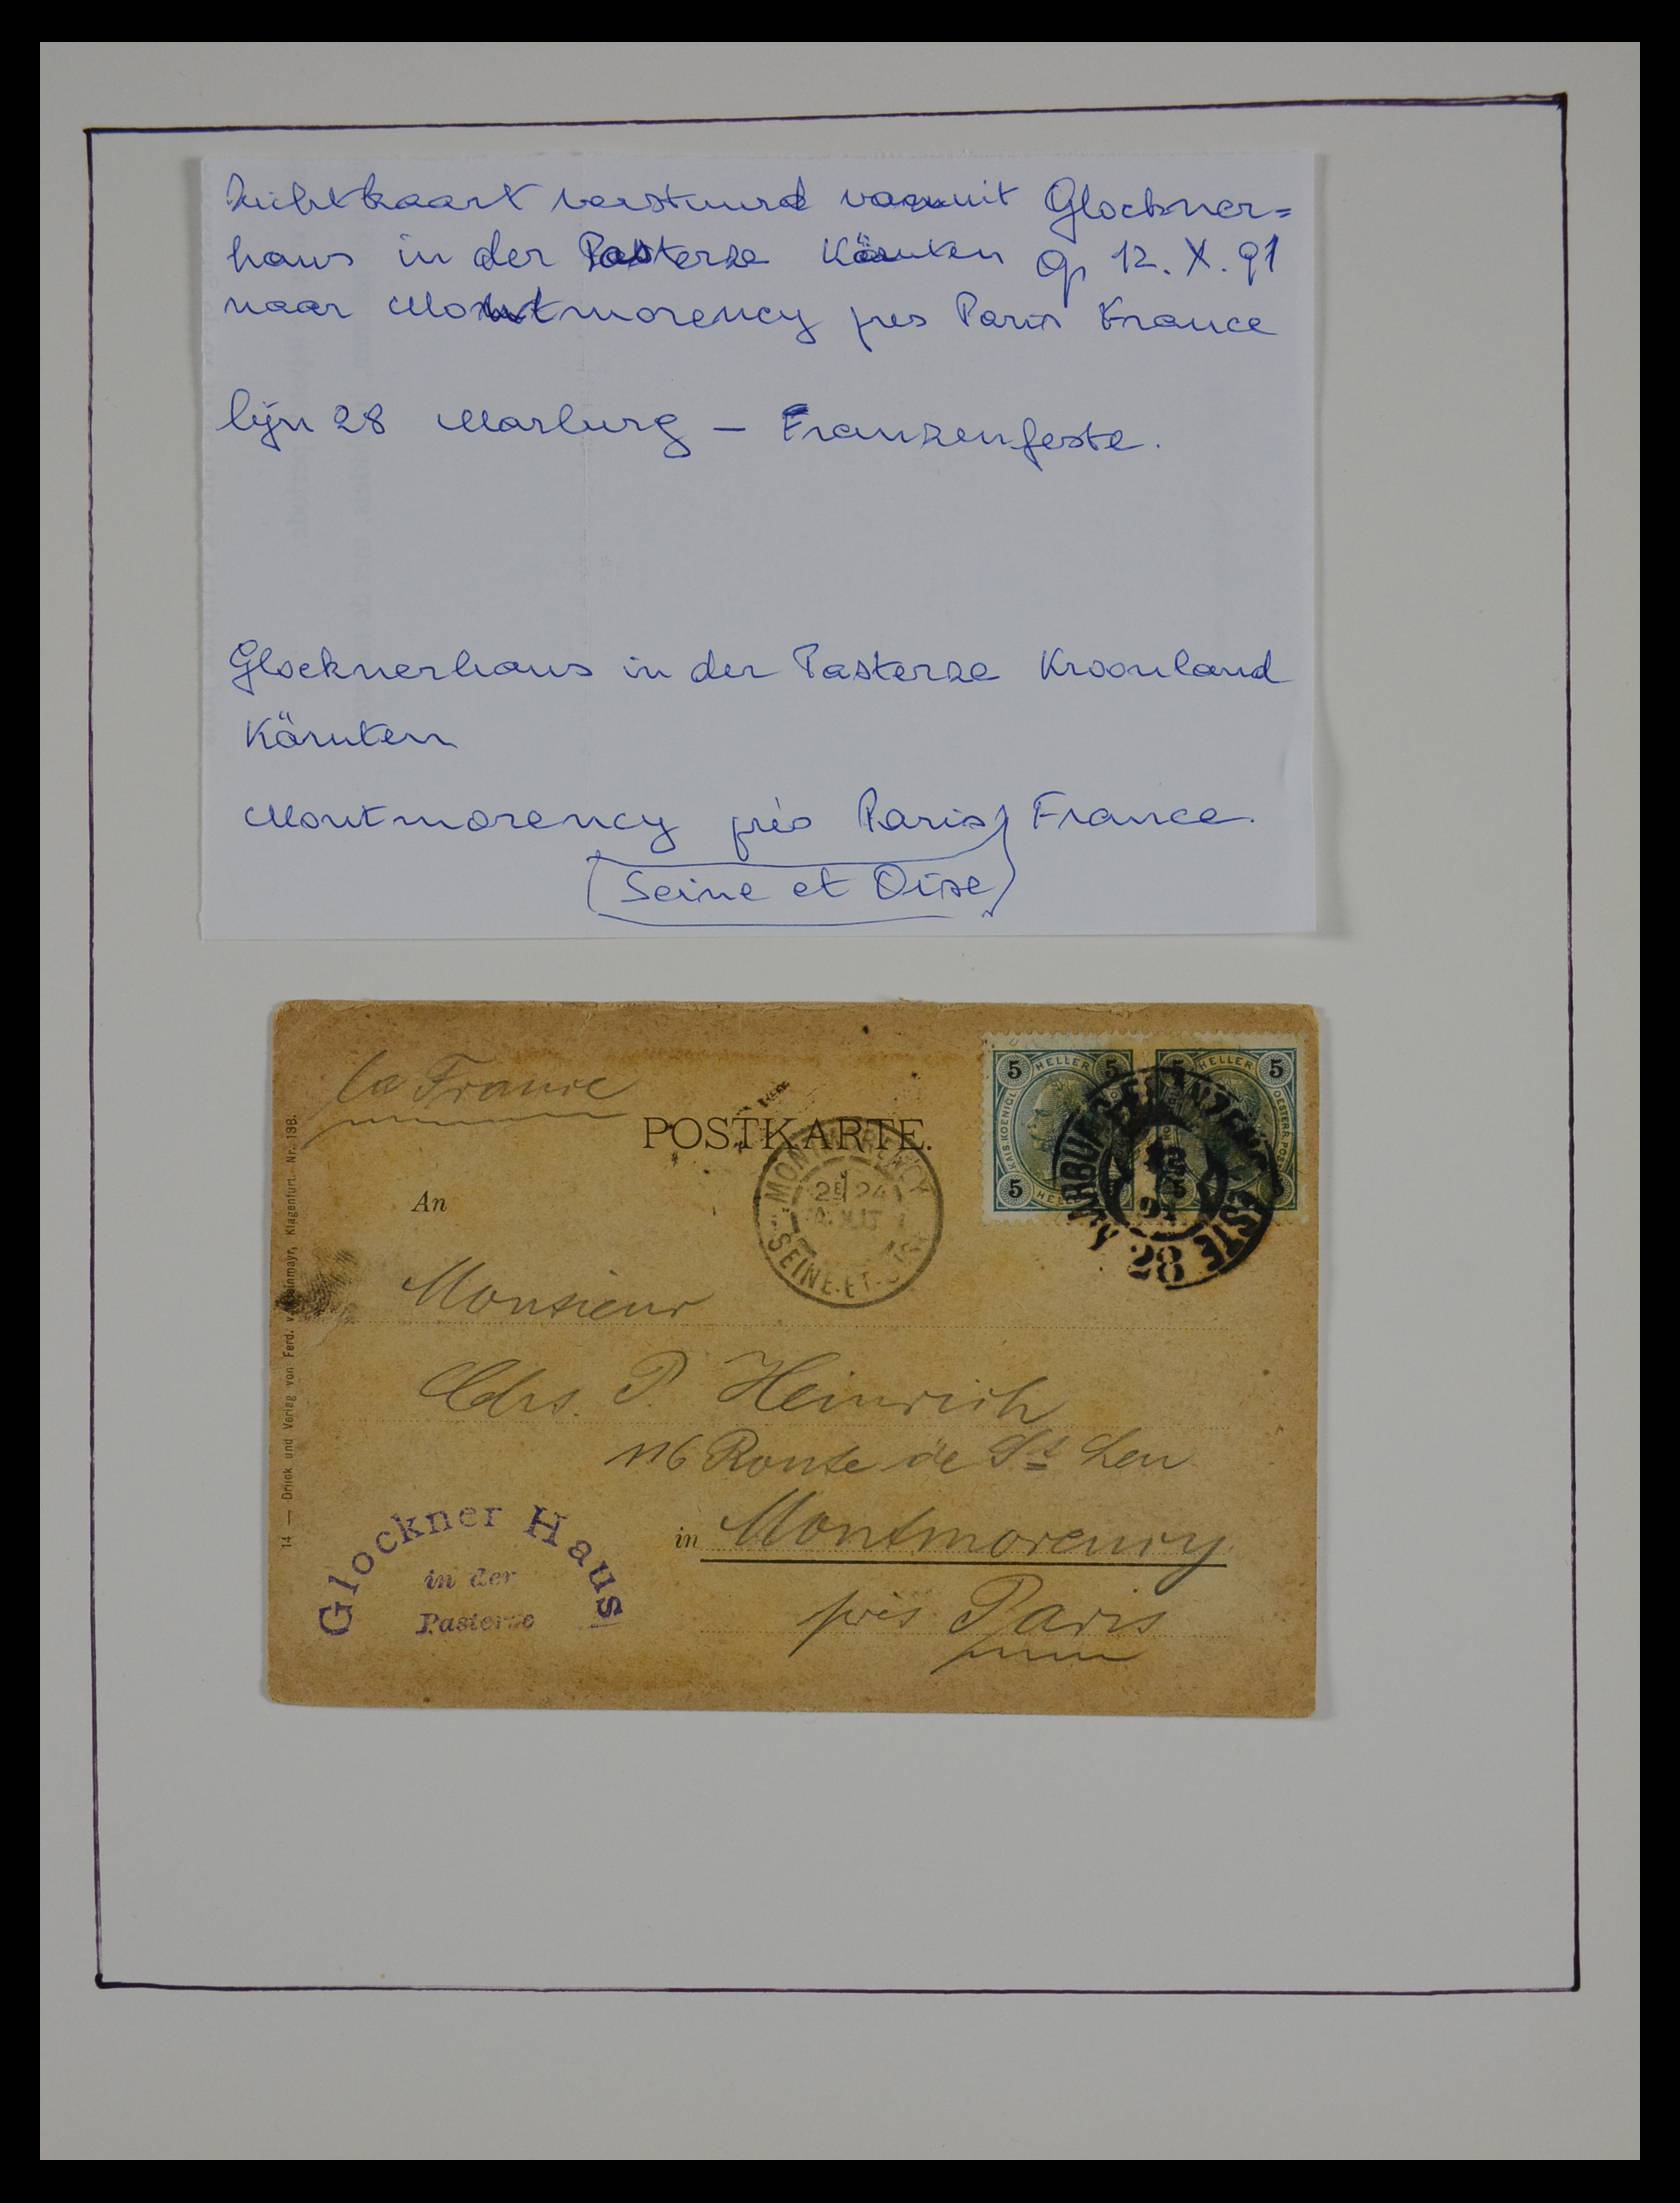 Zichtkaart verstuurd vanuit Glockner=
haus in der Pasterze Kärnten op 12. X. 91
naar Montmorency pres Paris France
lijn 28 Marburg – Franzenfeste.
Glocknerhaus in der Pasterze Kroonland
Kärnten
Montmorency près Paris, France.
(Seine et Oise)
la France
POSTKARTE.
5 HELLER 5
KAIS. KOENIGL.
5 HELLER 5
OESTERR. POST
MARBURG FRANZENSFESTE
91
28
MONTMORENCY
24
SEINE-ET-OISE
An
Monsieur
Chrs. P. Heinrich
116 Route de St Leu
in Montmorency
près Paris
Glockner Haus
in der
Pasterze
14 — Druck und Verlag von Ferd. v. Kleinmayr, Klagenfurt. Nr. 198.